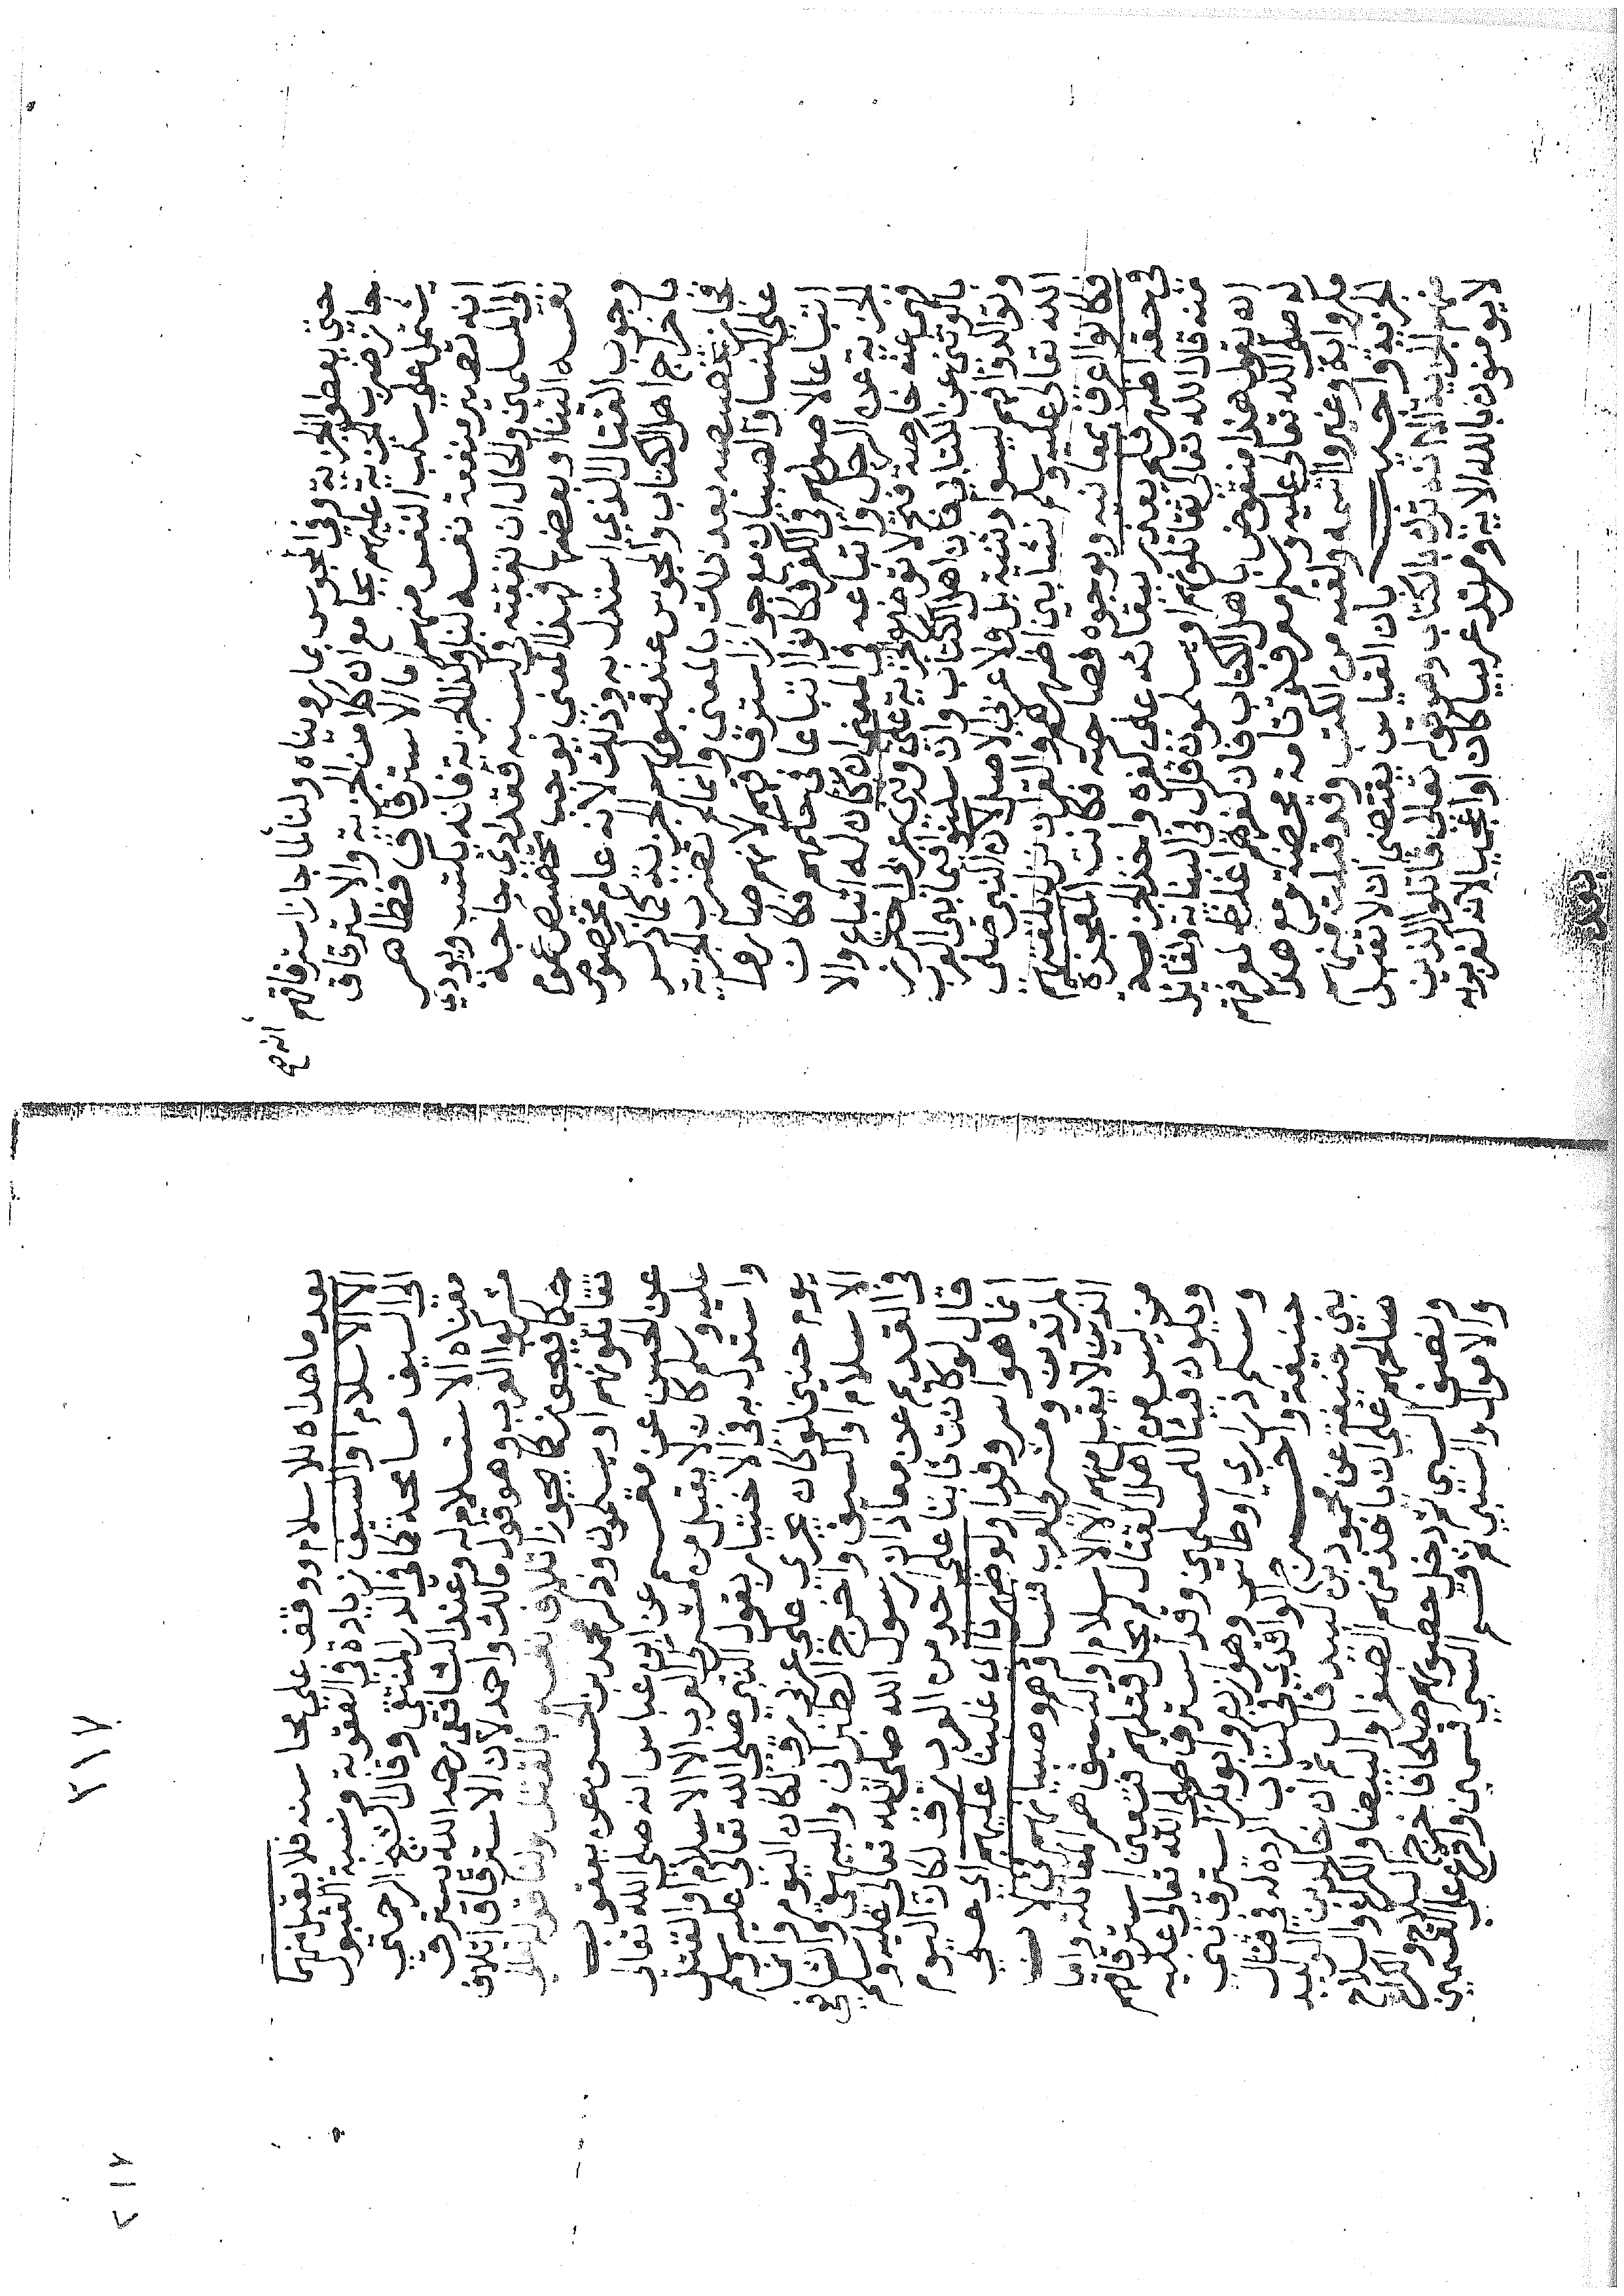 حتى يعطوا الجزية وفي المجوس بما رويناه ولنا لما جاز استرقاقهم
جاز ضرب الجزية عليهم بجامع ان كلا من الجزية والاسترقاق
يشتمل على سلب النفس منهم اما الاسترقاق فظاهر
انه تصير منفعة نفسه لنا وكذا الجزية فانه يكتسب ويودي
الى المسلمين والحال ان نفقته في كسبه فقد ادى حاجة
نفسه الينا او بعضها فهذا المعنى يوجب تخصيص عموم
وجوب القتال الذي استدل به وذلك لانه عام مخصوص
باخراج اهل الكتاب والمجوس عند قبولهم الجزية كما ذكر
فجاز تخصيصه بعد ذلك بالمعنى وانما لم تضرب الجزية
على النساء والصبيان مع جواز استرقاقهم لانهم صاروا
اتباعا لاصولهم في الكفر فكانوا اتباعا في حكمهم فكان
الجزية عن الرجل واتباعه في المعنى ان كان له اتباع والا
فهي عنه خاصة فتح لا توضع الجزية على وثني عربي احترز
بالوثني عن الكتابي فان اهل الكتاب وان سكنوا فيما بين العرب
وتوالدوا فهم ليسوا وثنية بل ولا عربي الاصل لان النبي صلى
الله تعالى عليه وسلم نشا بين اظهرهم والقران نزل بلغتهم
فكانوا اعرف بمعانيه وبوجوه فصاحته فكانت المعجزة
في حقه اظهر فلم يعذر ببقائه على كفره واخذ الجزية
منه قال الله تعالى تقاتلونهم او يسلمون قال في العناية ولقائل
ان يقول هذا منقوض باهل الكتاب فان كفرهم اغلظ لمعرفتهم
له صلى الله تعالى عليه وسلم معرفة تامة محضة ومع هذا
انكروا وغيروا اسمه ونعته من الكتب وقد قبلت منهم
الجزية واجيب بان القياس يقتضي ان لا تقبل
منهم الجزية الا انه ترك بالكتاب وهو قوله تعالى قاتلوا الذين
لا يومنون بالله الاية ومرتد عربيا كان او عجميا لانه كفر بربه
بعد
بعد ما هداه للاسلام ووقف على محاسنه فلا يقبل منهما
الا الاسلام او السيف زيادة في العقوبة ونسبة القبول
الى السيف مسامحة كما في الدر المنتقى وقال الشيخ الرحمتي
معناه الاستسلام له وعند الشافعي رحمه الله يسترق
مشركوا العرب وهو قول مالك واحمد لان الاسترقاق اتلاف
حكما فيجوز كما يجوز اتلاف نفسه بالقتل ولنا قوله تعالى
تقاتلونهم او يسلمون وذكر محمد بن الحسن عن يعقوب
عن الحسن عن مقسم عن ابن عباس انه صلى الله تعالى
عليه وسلم كان لا يقبل من مشركي العرب الا الاسلام والقتل
واستدل به في الاختيار بقول النبي صلى الله تعالى عليه وسلم
يوم حنين لو كان يجري على عربي رق لكان اليوم وانما
الاسلام او السيف واخرج الطبراني والبيهقي والشافعي
في القديم عن معاذ ان رسول الله صلى الله تعالى عليه وسلم
قال لو كان ثابتا على احد من العرب رق لكان اليوم
انما هو اسر وفداء ولو ظهرنا اي غلبنا عليهم اي على
المرتدين ومشركي العرب فنساوهم وصبيانهم فئ لان
الذين لا يقبل منهم الا الاسلام او السيف هم المقاتلة واما
من ليس من اهل القتال لم يحل قتلهم فتعين استرقاقهم
ويكون فيئا للمسلمين وقد استرق صلى الله تعالى عليه
وسلم ذراري اوطاس وهوازن وابو بكر استرق بني
حنيفة واخرج الواقدي في كتاب الردة له في قتال
بني حنيفة عن محمود بن لبيد قال ثم ان خالد بن الوليد
صالحهم على ان ياخذ منهم الصفرا والبيضا والكراع والسلاح
ونصف السبي ثم دخل حصونهم صلحا فاخرج السلاح والكراع
والاموال والسبي ثم قسم السبي قسمين واقرع على القسمين
٢١٧
٢١٧